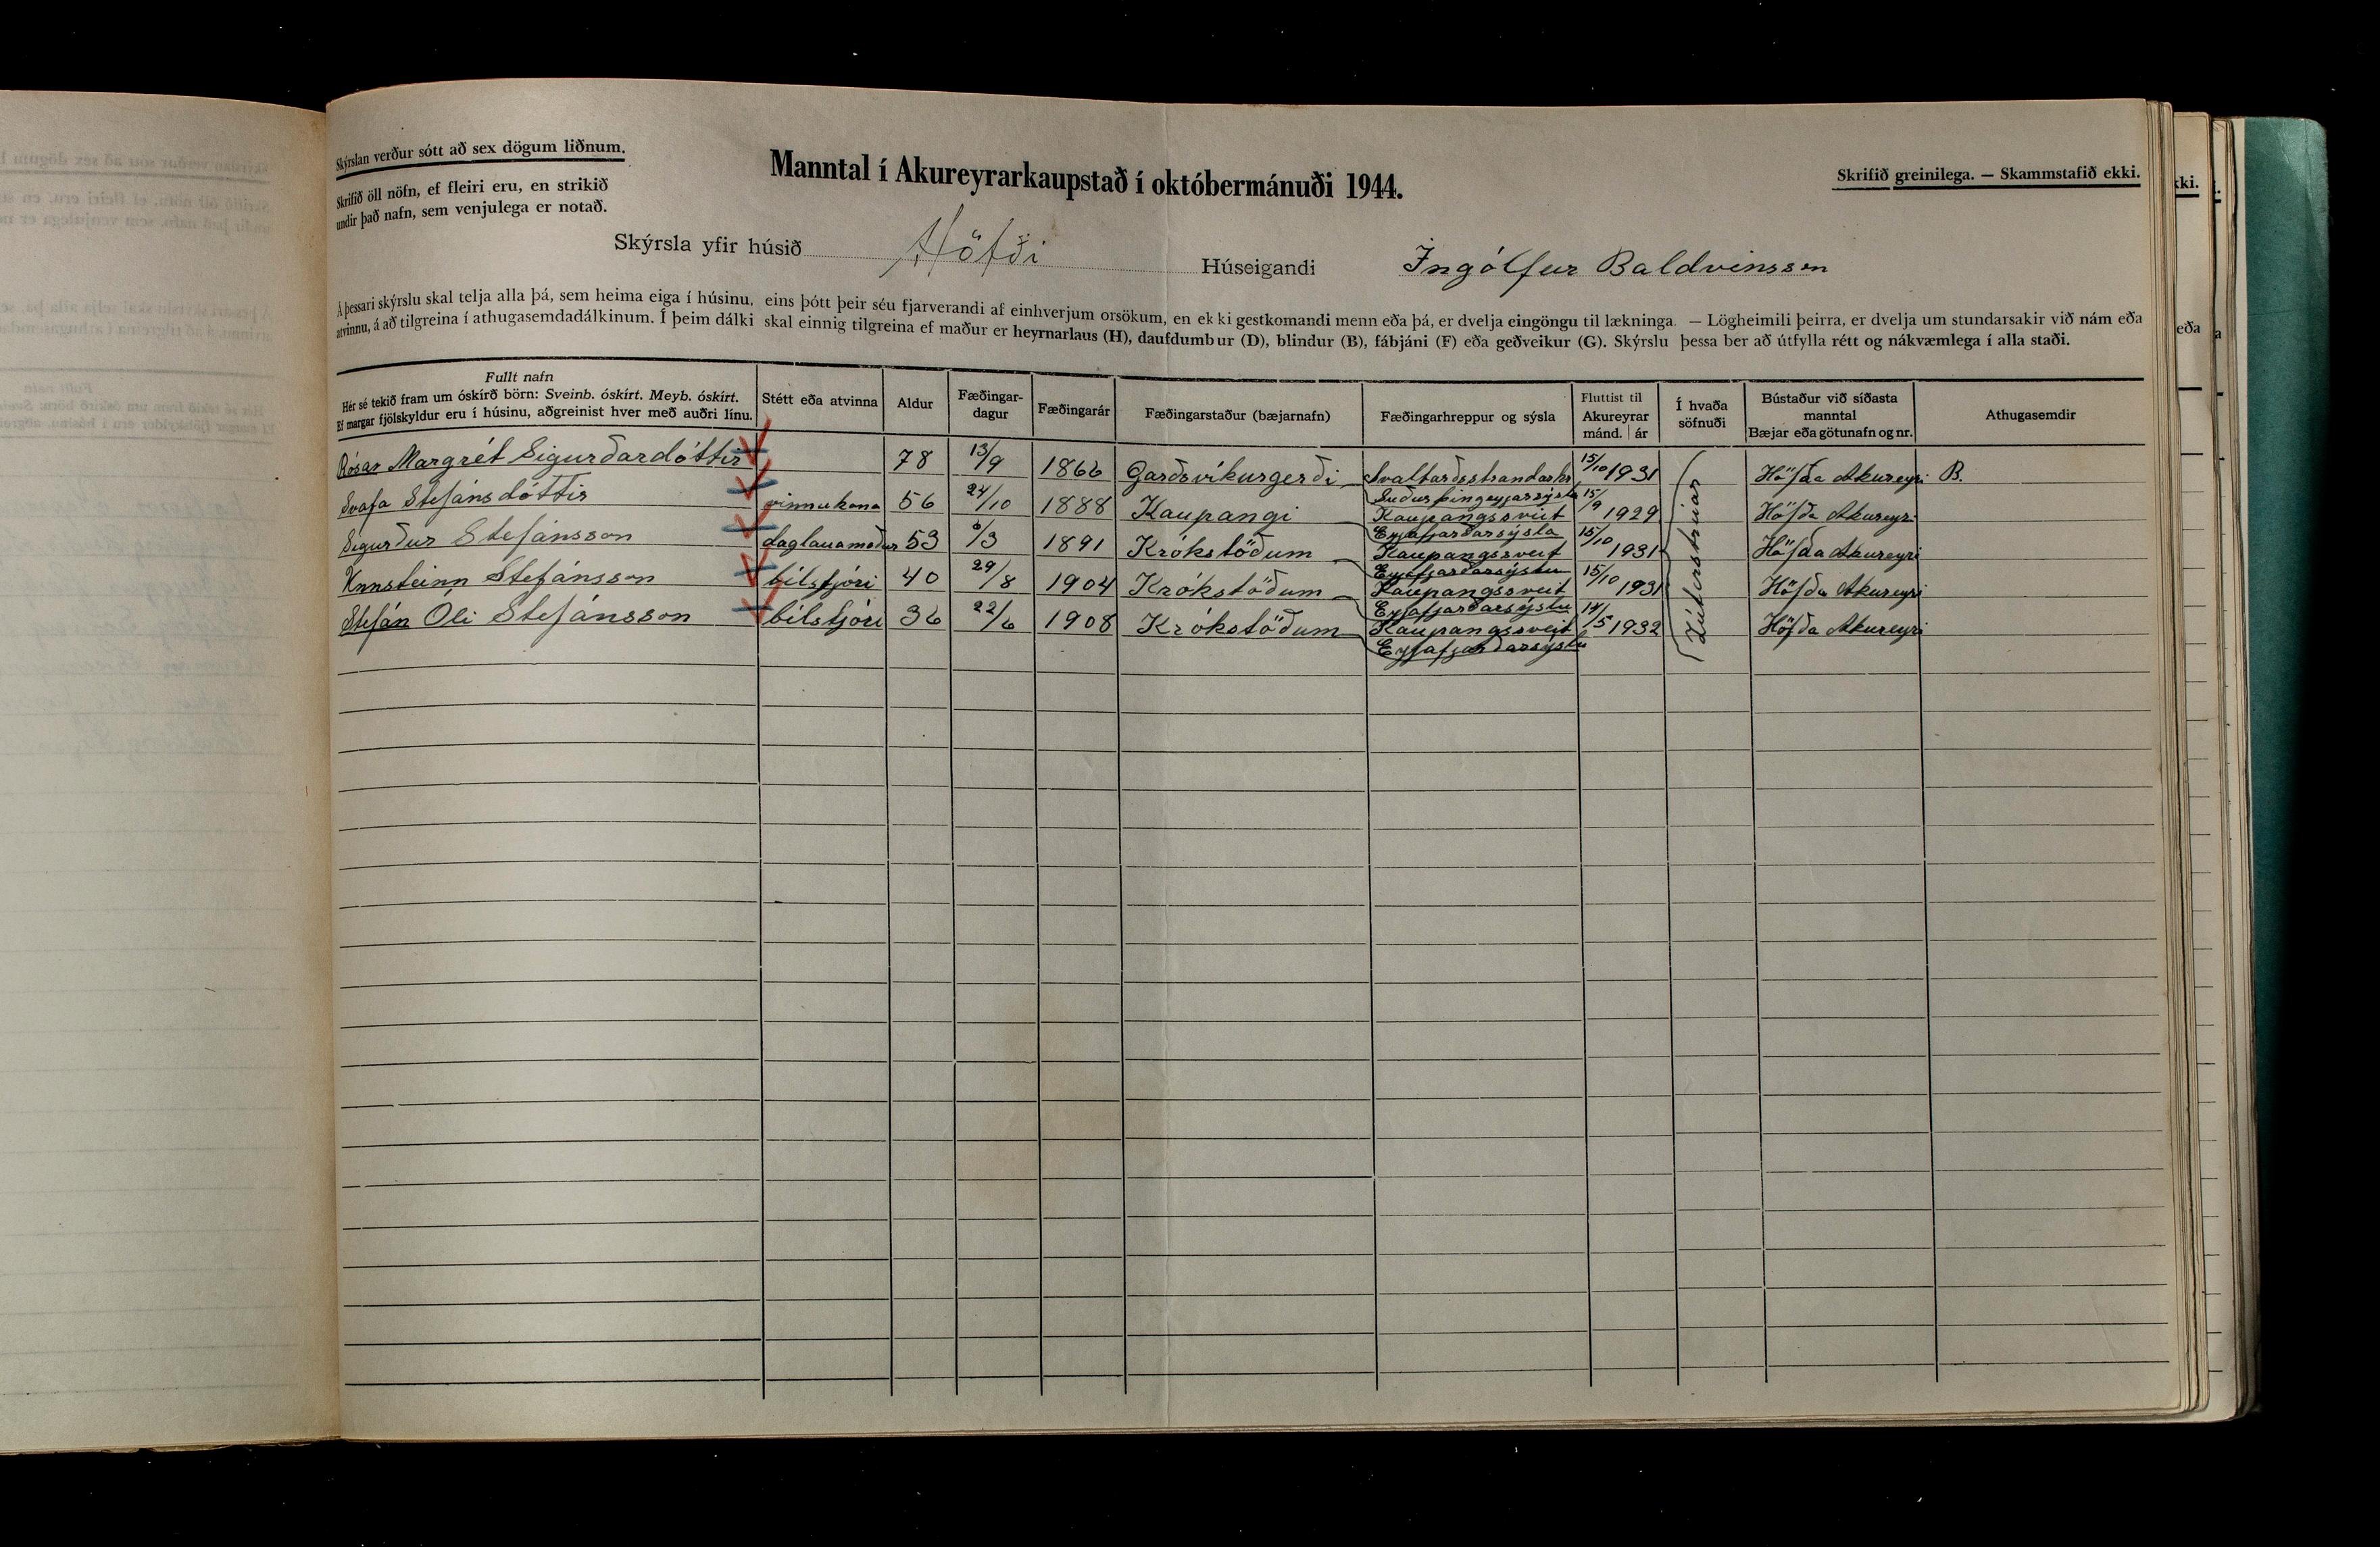 Skýrslan verður sótt að sex dögum liðnum.
Skrifið öll nöfn, ef fleiri eru, en strikið
undir það nafn, sem venjulega er notað.
Manntal í Akureyrarkaupstað í októbermánuði 1944.
Skrifið greinilega. — Skammstafið ekki.
Skýrsla yfir húsið Höfði Húseigandi Ingólfur Baldvinsson
Á þessari skýrslu skal telja alla þá, sem heima eiga í húsinu, eins þótt þeir séu fjarverandi af einhverjum orsökum, en ekki gestkomandi menn eða þá, er dvelja eingöngu til lækninga. — Lögheimili þeirra, er dvelja um stundarsakir við nám eða
atvinnu, á að tilgreina í athugasemdadálkinum. Í þeim dálki skal einnig tilgreina ef maður er heyrnarlaus (H), daufdumbur (D), blindur (B), fábjáni (F) eða geðveikur (G). Skýrslu þessa ber að útfylla rétt og nákvæmlega í alla staði.
Fullt nafn
Hér sé tekið fram um óskírð börn: Sveinb. óskírt. Meyb. óskírt.
Ef margar fjölskyldur eru í húsinu, aðgreinist hver með auðri línu.
Stétt eða atvinna
Aldur
Fæðingar-
dagur
Fæðingarár
Fæðingarstaður (bæjarnafn)
Fæðingarhreppur og sýsla
Fluttist til
Akureyrar
mánd. | ár
Í hvaða
söfnuði
Bústaður við síðasta
manntal
Bæjar eða götunafn og nr.
Athugasemdir
Rósar Margrét Sigurðardóttir 78 13/9 1866 Garðsvíkurgerði Svalbarðsstrandarhr 15/10 1931 Höfða Akureyri B.
Suður þingeyjarsýsla
Svafa Stefánsdóttir vinnukona 56 24/10 1888 Kaupangi Kaupangssveit 15/9 1929 Höfða Akureyri
Eyjafjarðarsýsla
Sigurður Stefánsson daglaunamaður 53 6/3 1891 Krókstöðum Kaupangssveit 15/10 1931 Höfða Akureyri
Eyjafjarðarsýslu
Unnsteinn Stefánsson bílstjóri 40 29/8 1904 Krókstöðum Kaupangssveit 15/10 1931 Höfða Akureyri
Eyjafjarðarsýslu
Stefán Óli Stefánsson bílstjóri 36 22/6 1908 Krókstöðum Kaupangssveit 14/5 1932 Höfða Akureyri
Eyjafjarðarsýslu
Lúterstrúar
kki.
eða